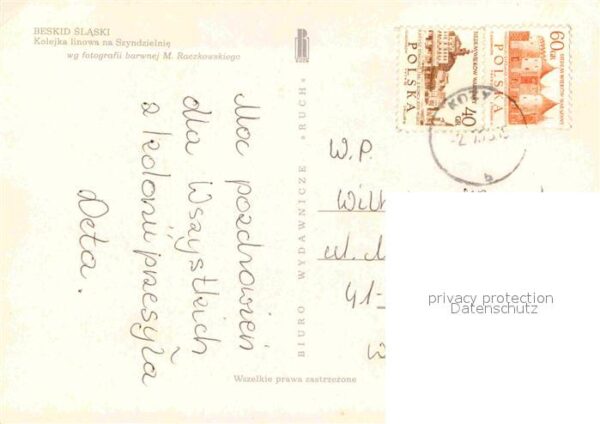 BESKID ŚLĄSKI
Kolejka linowa na Szyndzielnię
wg fotografii barwnej M. Raczkowskiego
RUCH
Moc pozdrowień
dla Wszystkich
z kolonii przesyła
Deta.
BIURO WYDAWNICZE »RUCH«
Wszelkie prawa zastrzeżone
POLSKA
40 GR
POLSKA
60 GR
KOZY
b
W.P.
ul.
41-
privacy protection
Datenschutz